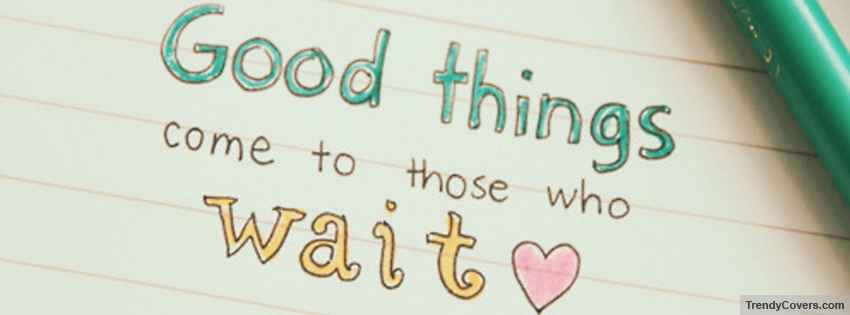 Good things
come to those who
wait
TrendyCovers.com